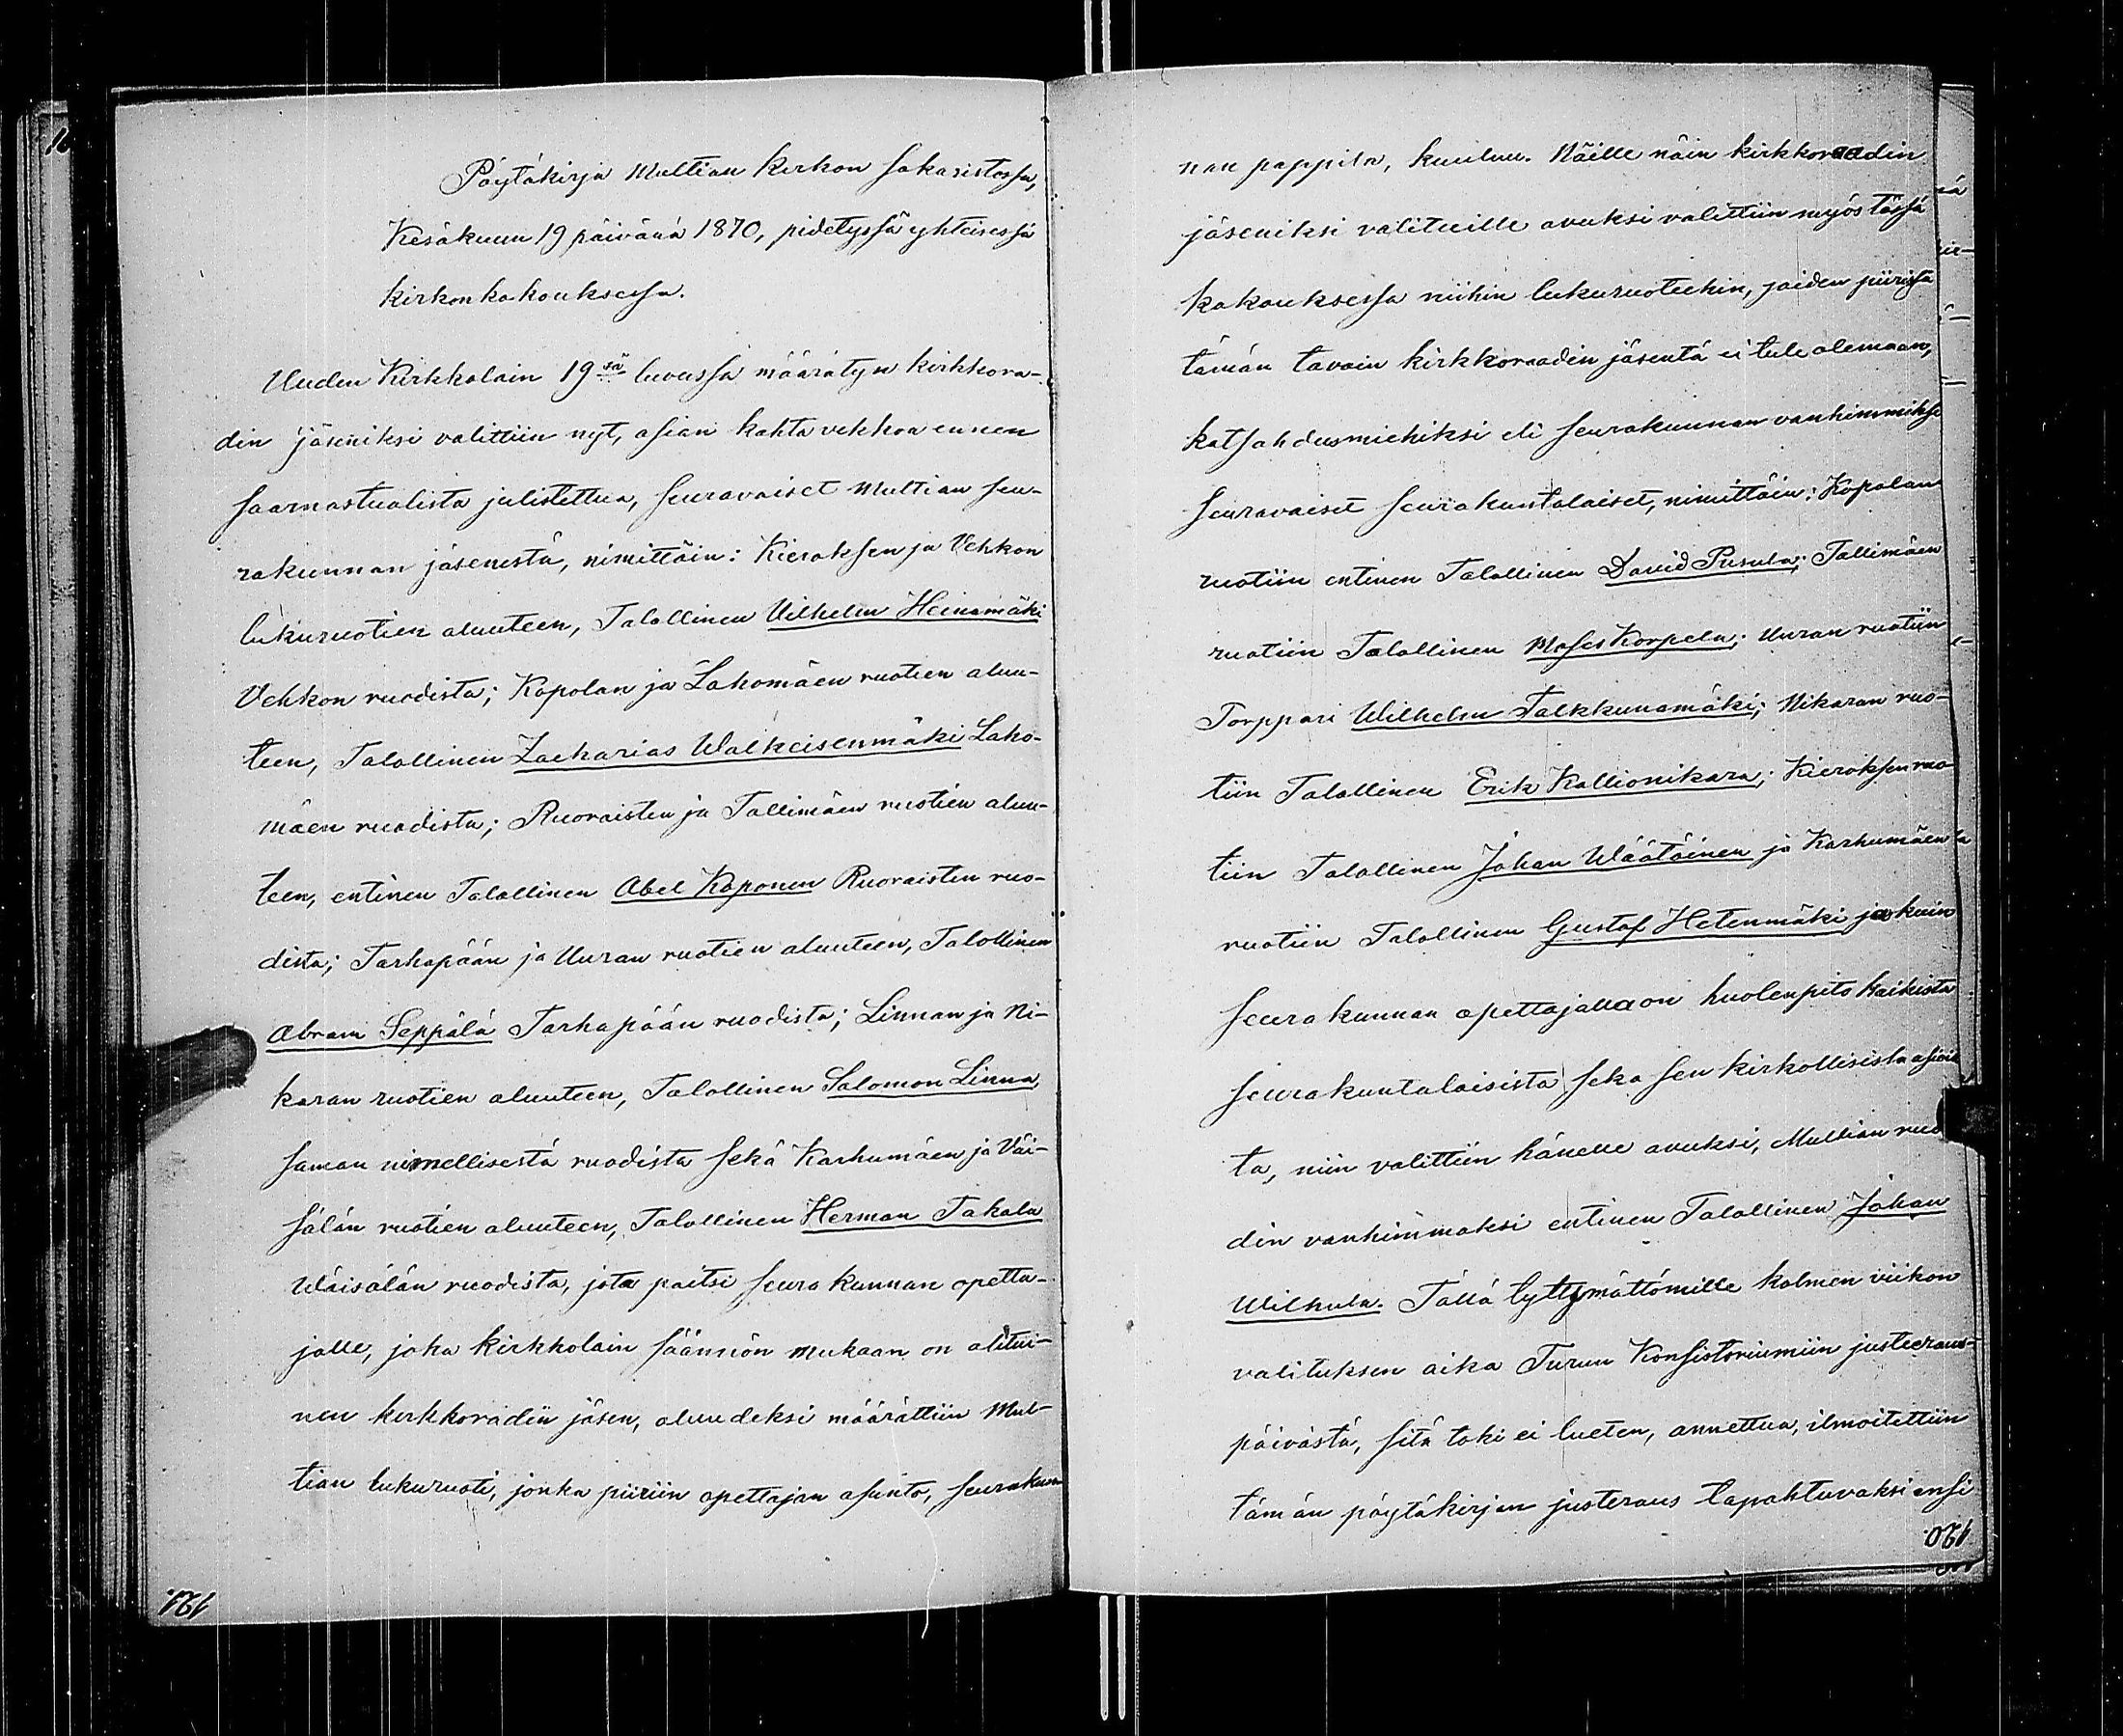 Pöytäkirja Multian Kirkon sakaristossa,
Kesäkuun 19 päivänä 1870, pidetyssä yhteisessä
kirkonkokouksessa.
Uuden Kirkkolain 19 sä luvussa määrätyn kirkkora-
din jäseniksi valittiin nyt, asian kahta vekkoa ennen
saarnastuolista julistettua, seuravaiset Multian seu-
rakunnan jäsenistä, nimittäin: Kieroksen ja Vehkon
lukuruotien alueeteen, Talollinen Vilhelm Heinämäki
Vehkon ruodista; Kopolan ja Lahomäen ruotien aluu-
teen, Talollinen Zacharias Walkeisenmäki Laho-
mäen ruodista; Ruoraisten ja Tallimäen ruotien aluu-
teen, entinen Talollinen Abel Koponen Ruoraisten ruo-
dista; Tarhapään ja Uuran ruotien aluuteen, Talollinen
Abram Seppälä Tarhapään ruodista; Linnan ja Ni-
karan ruotien aluuteen, Talollinen Salomon Linna,
saman nimellisestä ruodista sekä Karhumäen ja Väi-
sälän ruotien aluuteen, Talollinen Herman Takala
Wäisälän ruodista, jota paitsi seurakunnan opetta-
jalle, joka kirkkolain säännön mukaan on alitui-
nen kirkkoradin jäsen, aluudeksi määrättiin Mul-
tian lukuruoti, jonka piiriin opettajan asunto, seurakun
121.
nan pappila, kuuluu. Näille näin kirkkoraadin
jäseniksi valituille avuksi valittiin myös tässä
kokouksessa niihin lukuruoteehin, joiden piirissä
tämän tavoin kirkkoraadin jäsentä ei tule olemaan,
katsahdusmiehiksi eli seurakunnan vanhimmiksi
seuravaiset seurakuntalaiset, nimittäin: Kopolan
ruotiin entinen Talollinen David Pusula; Tallimäen
ruotiin Talollinen Moses Korpela; Uuran ruotiin
Torppari Wilhelm Talkkunamäki; Nikaran ruo-
tiin Talollinen Erik Kallionikara; Kieroksen ruo
tiin Talollinen Johan Wäätäinen ja Karhumäen
ruotiin Talollinen Gustaf Hetenmäki ja kuin
seurakunnan opettajalla on huolenpito kaikista
seurakuntalaisista seka sen kirkollisista asiois
ta, niin valittiin hänelle avuksi, Multian ruo
din vanhimmaksi entinen Talollinen Johan
Wilhula. Tällä tyttymättömille kolmen viikon
valituksen aika Turun Konsistoriumiin justeeraus-
päivästä, sitä toki ei lueten, annettua, ilmoitettiin
tämän pöytäkirjan justeraus tapahtuvaksi ensi
120.